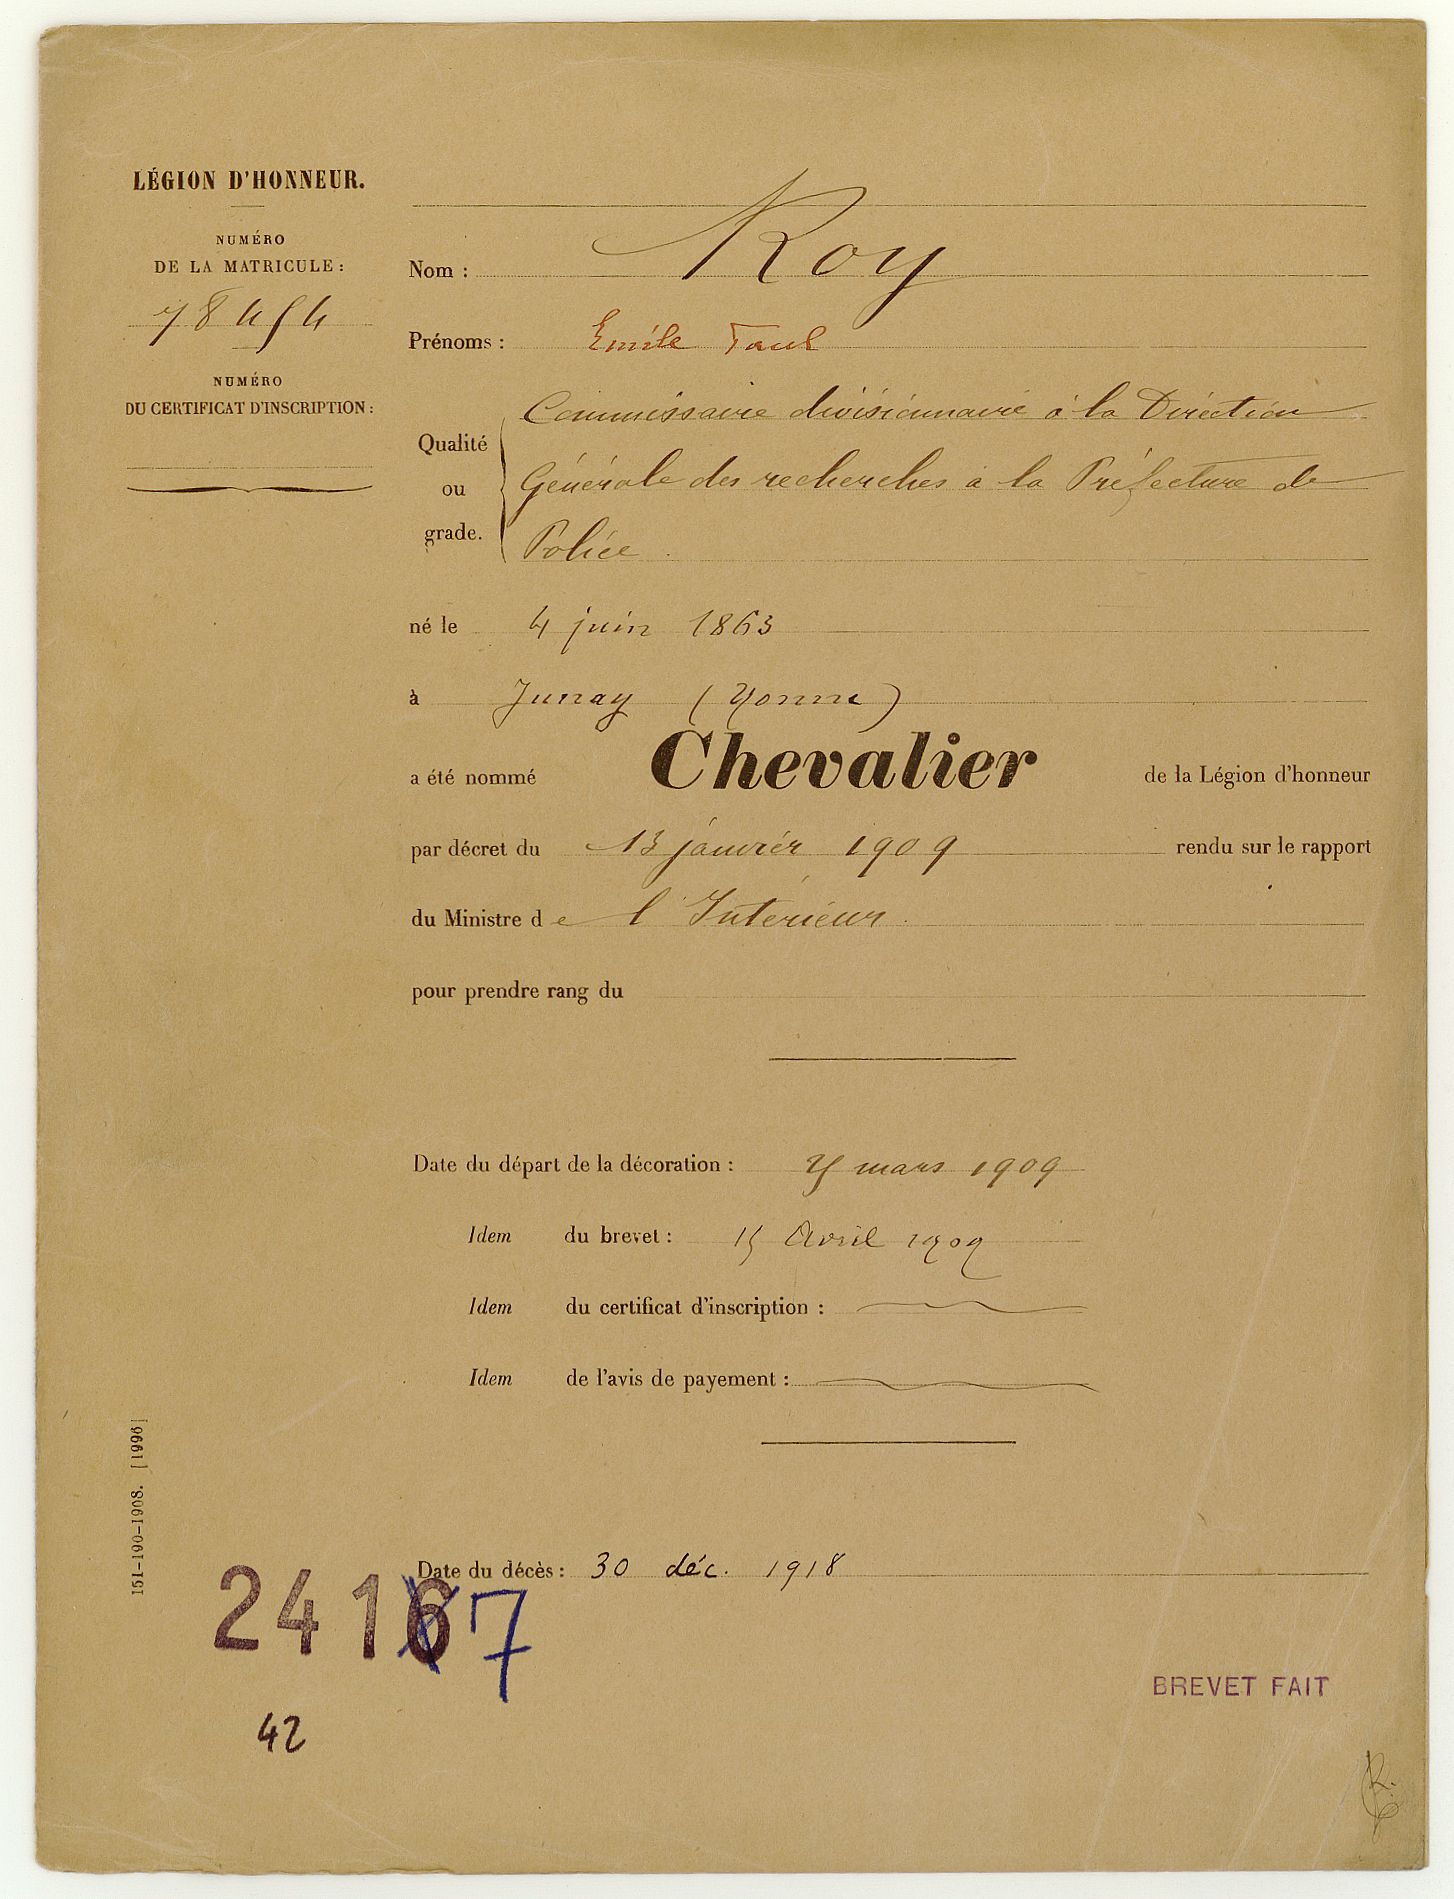 LÉGION D'HONNEUR.
NUMÉRO
DE LA MATRICULE :
78454
NUMÉRO
DU CERTIFICAT D'INSCRIPTION :
Nom : Roy
Prénoms : Emile Paul
Qualité ou grade. Commissaire divisionnaire à la Direction
Générale des recherches à la Préfecture de
Police.
né le 4 juin 1863
à Junay (Yonne)
a été nommé Chevalier de la Légion d'honneur
par décret du 13 janvier 1909 rendu sur le rapport
du Ministre de l'Intérieur.
pour prendre rang du
Date du départ de la décoration : mars 1909
Idem du brevet : 15 Avril 1909
Idem du certificat d'inscription :
Idem de l'avis de payement :
151-190-1908. [1996]
Date du décès : 30 déc. 1918
24167
BREVET FAIT
42